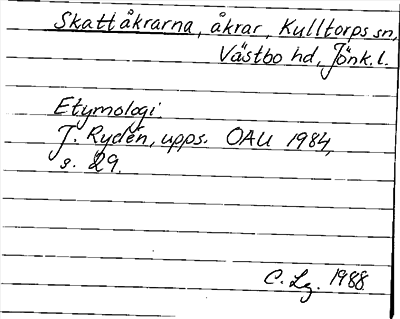 Skattåkrarna, åkrar, Kulltorps sn,
Västbo hd, Jönk. l.
Etymologi
J. Rydén, upps. OAU 1984,
s. 29.
C. Lg. 1988